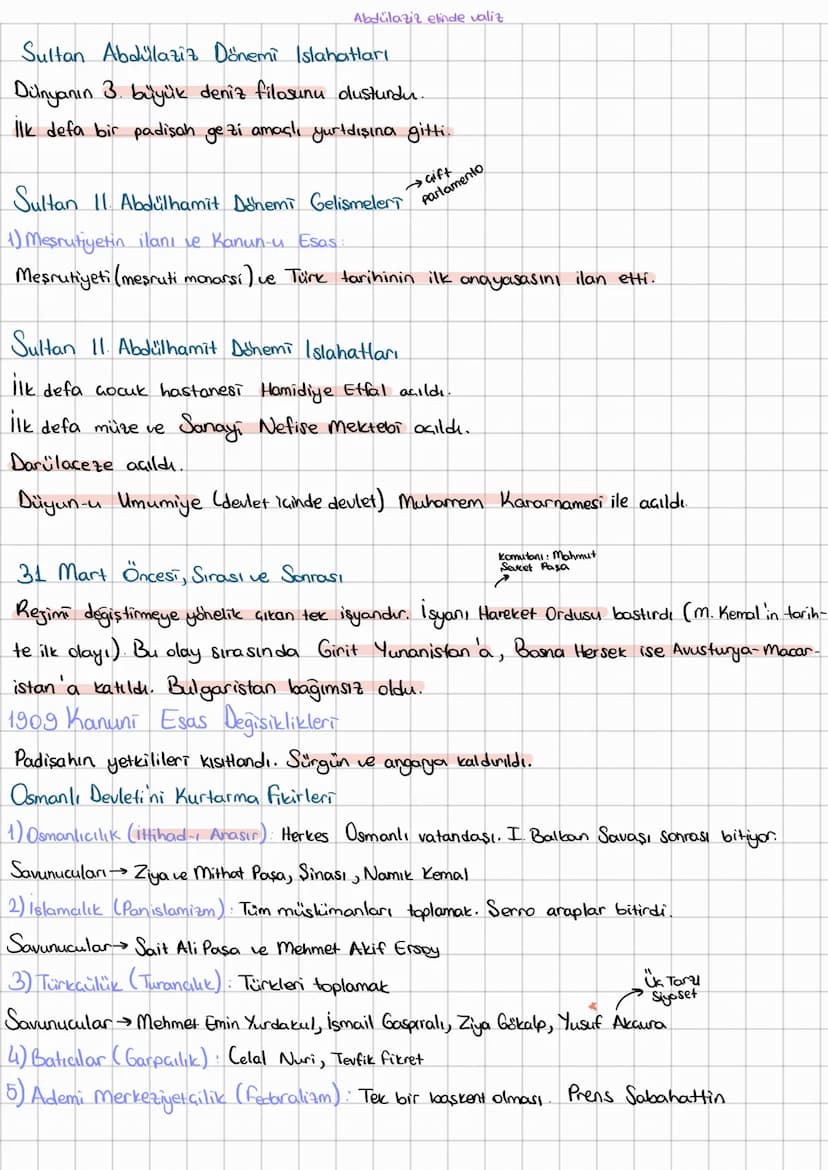 Abdülaziz elinde valiz
Sultan Abdülaziz Dönemi Islahatları
Dünyanın 3. büyük deniz filosunu oluşturdu.
İlk defa bir padişah gezi amaçlı yurtdışına gitti.
→ çift parlamento
Sultan II. Abdülhamit Dönemi Gelişmeleri
1) Meşrutiyetin ilanı ve Kanun-u Esas:
Meşrutiyeti (meşruti monarşi) ve Türk tarihinin ilk anayasasını ilan etti.
Sultan II. Abdülhamit Dönemi Islahatları
İlk defa çocuk hastanesi Hamidiye Etfal açıldı.
İlk defa müze ve Sanayi Nefise Mektebi açıldı.
Darülaceze açıldı.
Düyun-u Umumiye (devlet içinde devlet) Muharrem Kararnamesi ile açıldı.
Komutanı: Mahmut
Şevket Paşa
31 Mart Öncesi, Sırası ve Sonrası
Rejimi değiştirmeye yönelik çıkan tek isyandır. İsyanı Hareket Ordusu bastırdı (M. Kemal'in tarih-
te ilk olayı). Bu olay sırasında Girit Yunanistan'a, Bosna Hersek ise Avusturya-Macar-
istan'a katıldı. Bulgaristan bağımsız oldu.
1909 Kanuni Esas Değişiklikleri
Padişahın yetkilileri kısıtlandı. Sürgün ve angarya kaldırıldı.
Osmanlı Devleti'ni Kurtarma Fikirleri
1) Osmanlıcılık (İttihad-ı Anasır): Herkes Osmanlı vatandaşı. I. Balkan Savaşı sonrası bitiyor.
Savunucuları → Ziya ve Mithat Paşa, Şinasi, Namık Kemal
2) İslamcılık (Panislamizm): Tüm müslümanları toplamak. Sonra araplar bitirdi.
Savunucular → Sait Ali Paşa ve Mehmet Akif Ersoy
3) Türkçülük (Turancılık): Türkleri toplamak
Üç Tarzı
Siyaset
Savunucular → Mehmet Emin Yurdakul, İsmail Gaspıralı, Ziya Gökalp, Yusuf Akçura
4) Batıcılar (Garpçılık): Celal Nuri, Tevfik Fikret
5) Ademi Merkeziyetçilik (Federalizm): Tek bir başkent olması. Prens Sabahattin